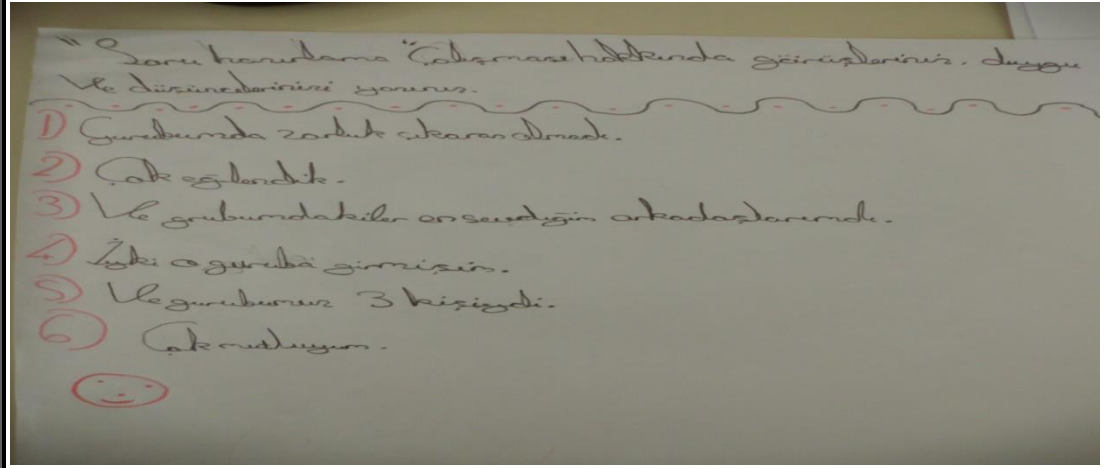 "Soru hazırlama" Çalışması hakkında görüşleriniz, duygu
ve düşüncelerinizi yazınız.
1) Gurubumda zorluk çıkaran olmadı.
2) Çok eğlendik.
3) Ve grubumdakiler en sevdiğim arkadaşlarımdı.
4) İyki o guruba girmişim.
5) Ve gurubumuz 3 kişiydi.
6) Çok mutluyum.